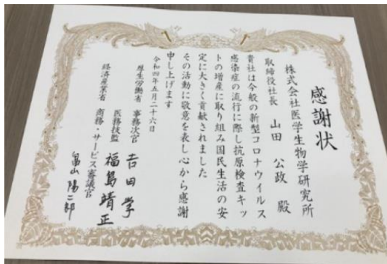 感謝状
株式会社医学生物学研究所
取締役社長 山田 公政 殿
貴社は今般の新型コロナウイルス
感染症の流行に際し抗原検査キッ
トの増産に取り組み国民生活の安
定に大きく貢献されました
その活動に敬意を表し心から感謝
申し上げます
令和四年五月二十六日
厚生労働省 事務次官 吉田 学
医務技監 福島 靖正
経済産業省 商務・サービス審議官
畠山 陽二郎